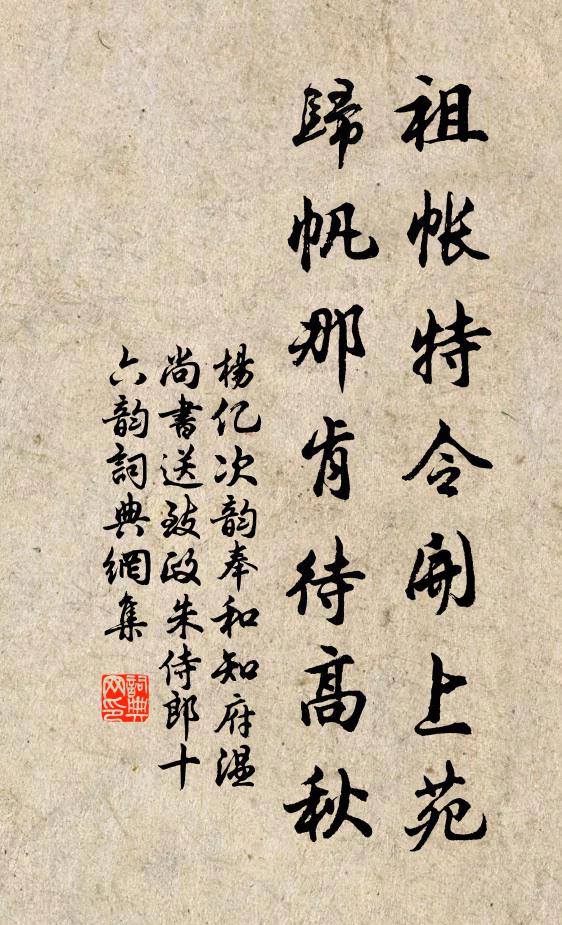 祖帐特令開上苑
歸帆那肯待高秋
楊億次韵奉和知府温
尚書送致政朱侍郎十
六韵詞典網集
詞典网印